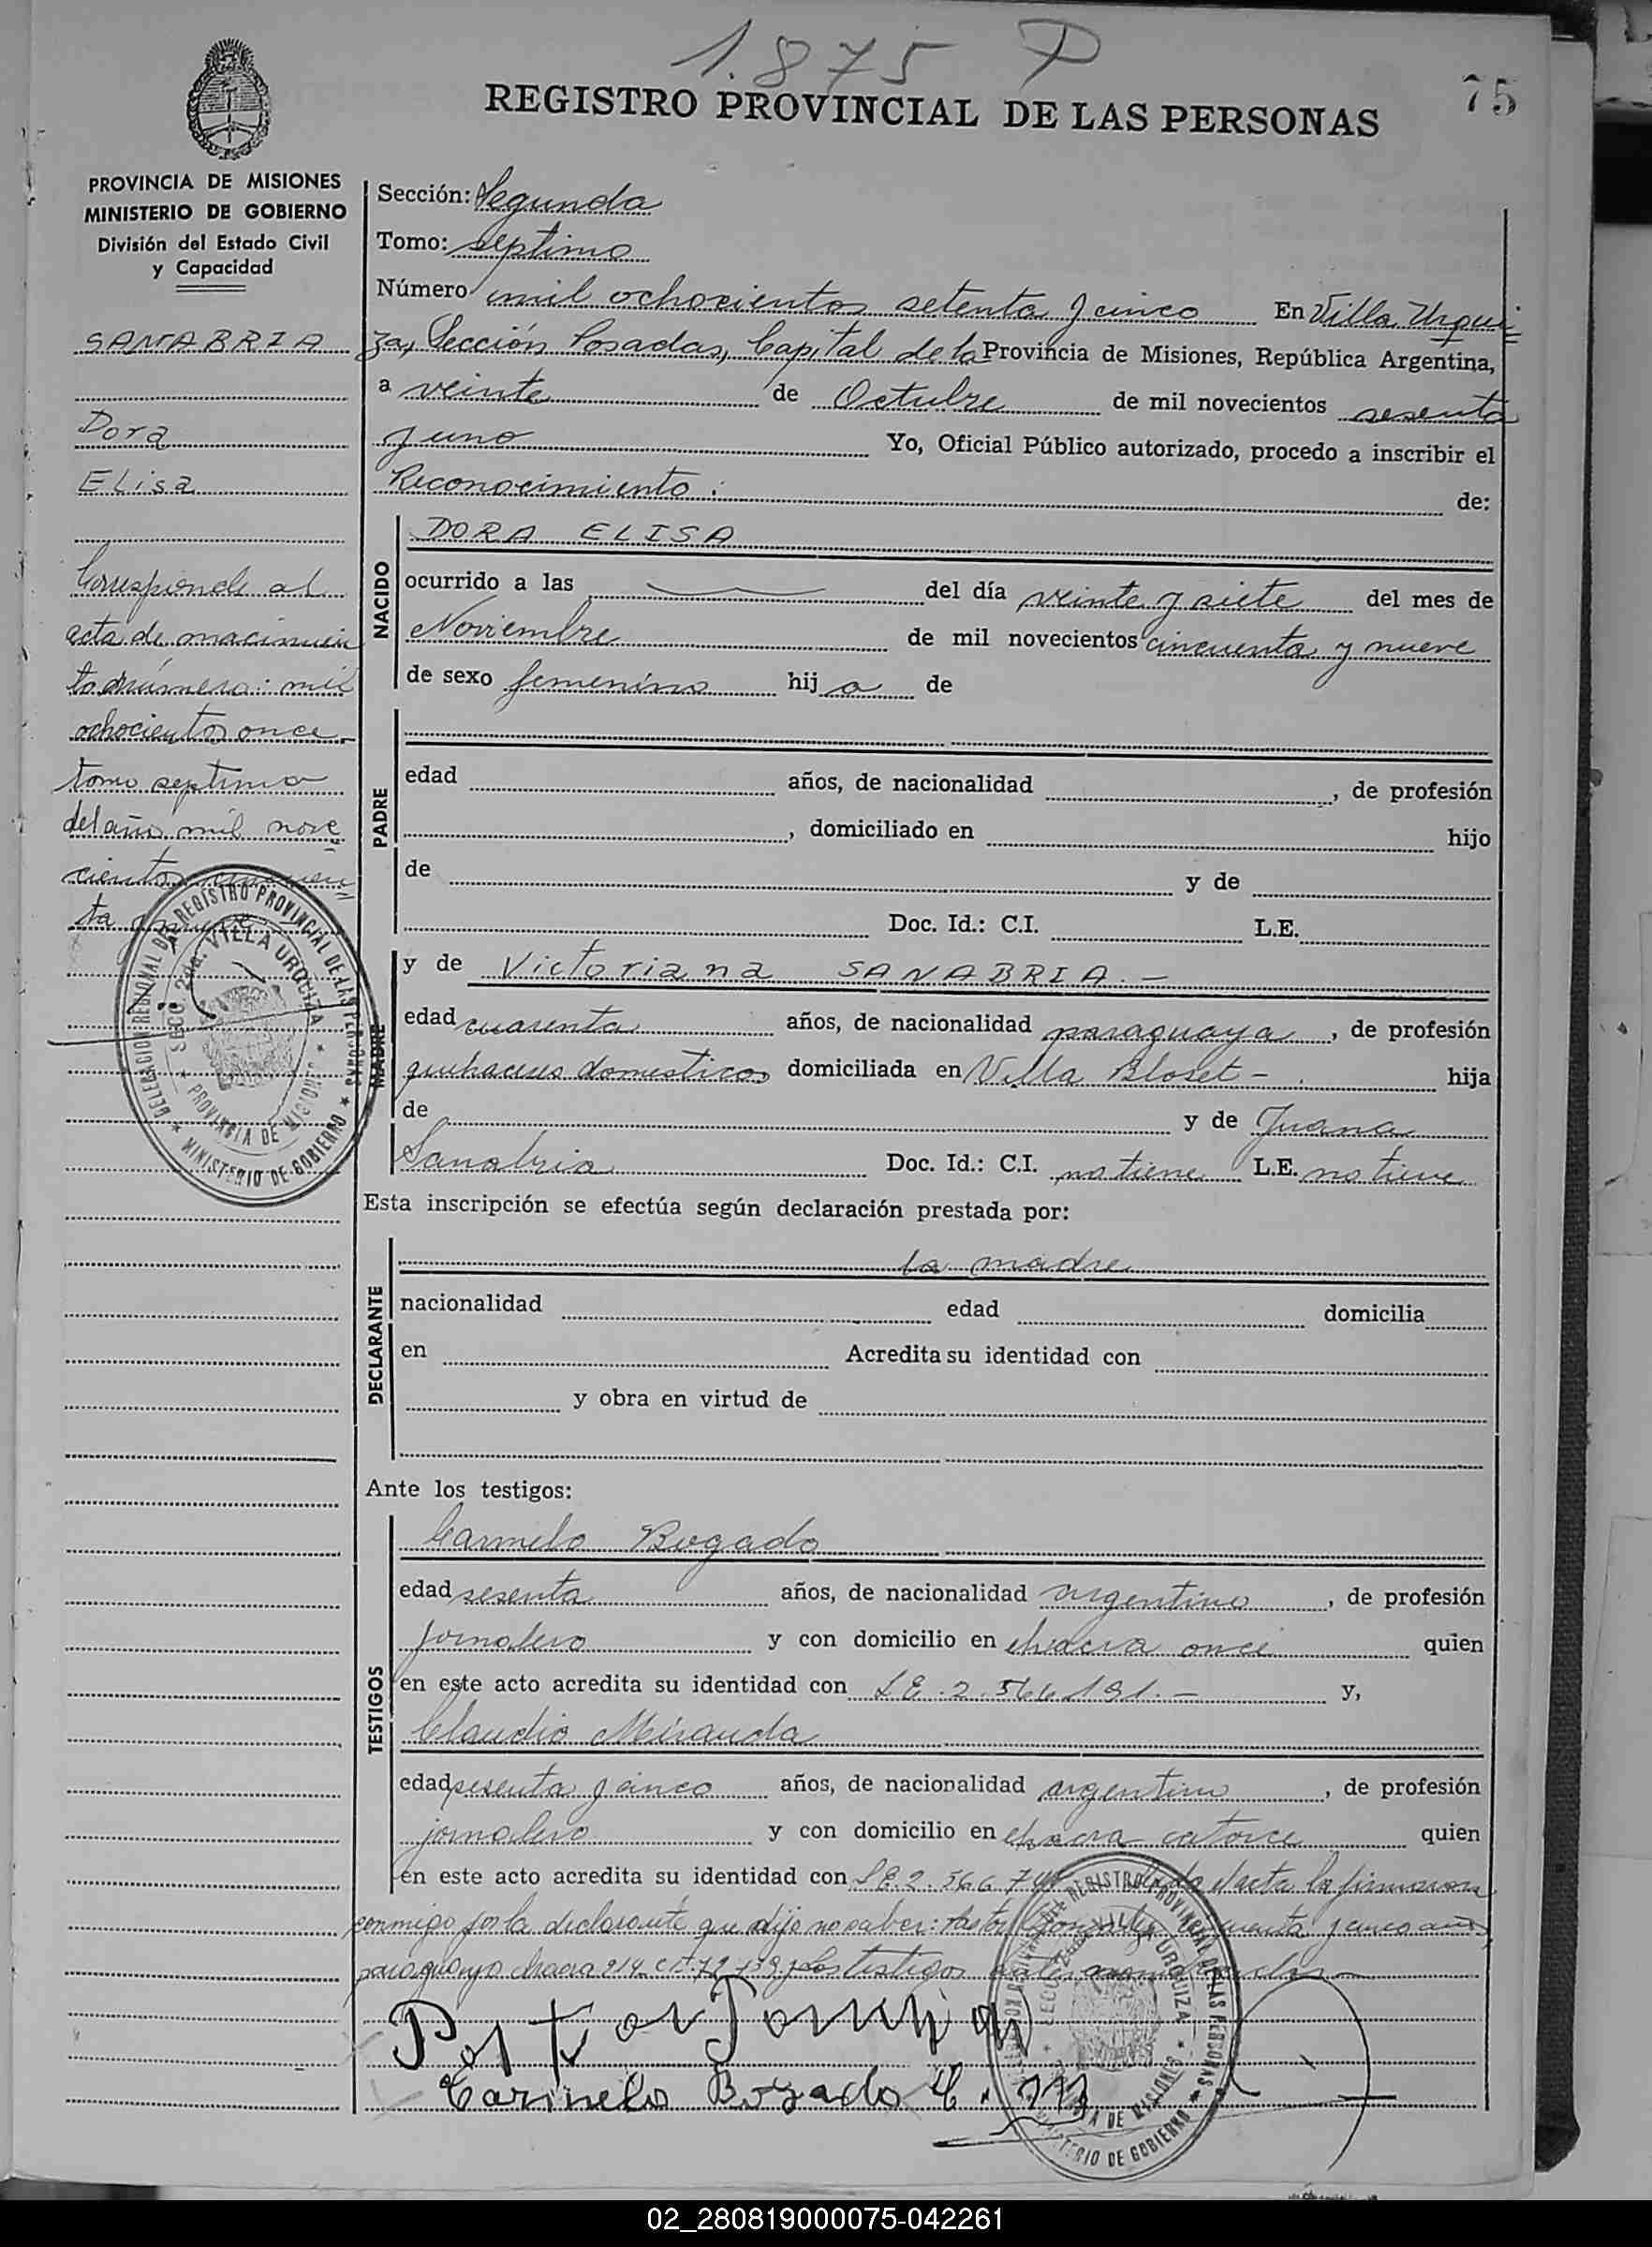 1.875 P
75
REGISTRO PROVINCIAL DE LAS PERSONAS
PROVINCIA DE MISIONES
MINISTERIO DE GOBIERNO
División del Estado Civil
y Capacidad
SANABRIA
Dora
ELisa
Corresponde al
acta de nacimien
to número: mil
ochocientos once
tomo septimo
del año mil nove
cientos cincuen
ta y nueve
Sección: Segunda
Tomo: septimo
Número mil ochocientos setenta y cinco En Villa Urqui
za, Sección Posadas, Capital de la Provincia de Misiones, República Argentina,
a veinte de Octubre de mil novecientos sesenta
y uno Yo, Oficial Público autorizado, procedo a inscribir el
Reconocimiento: de:
NACIDO
DORA ELISA
ocurrido a las del día veinte y siete del mes de
Noviembre de mil novecientos cincuenta y nueve
de sexo femenino hija de
PADRE
edad años, de nacionalidad , de profesión
, domiciliado en hijo
de y de
Doc. Id.: C.I. L.E.
MADRE
y de Victoriana SANABRIA.-
edad cuarenta años, de nacionalidad paraguaya, de profesión
quehaceres domesticos domiciliada en Villa Bloset - hija
de y de Juana
Sanabria Doc. Id.: C.I. no tiene L.E. no tiene
Esta inscripción se efectúa según declaración prestada por:
DECLARANTE
la madre
nacionalidad edad domicilia
en Acredita su identidad con
y obra en virtud de
Ante los testigos:
TESTIGOS
Carmelo Bogado
edad sesenta años, de nacionalidad argentino, de profesión
jornalero y con domicilio en chacra once quien
en este acto acredita su identidad con L.E. 2.566.191.- y,
Claudio Miranda
edad sesenta y cinco años, de nacionalidad argentino, de profesión
jornalero y con domicilio en chacra catorce quien
en este acto acredita su identidad con L.E. 2.566.7 Leida el acta la firmaron
conmigo por la declarante que dijo no saber: Pastor cuenta y cinco años,
paraguayo chacra 214 C.I. 72.739 y los testigos
Carmelo Bogado
DELEGACION REGIONAL DEL REGISTRO PROVINCIAL DE LAS PERSONAS
SECC. 2da. VILLA URQUIZA
PROVINCIA DE MISIONES
MINISTERIO DE GOBIERNO
REGISTRO PROVINCIAL DE LAS PERSONAS
VILLA URQUIZA
DE MISIONES
MINISTERIO DE GOBIERNO
02_280819000075-042261